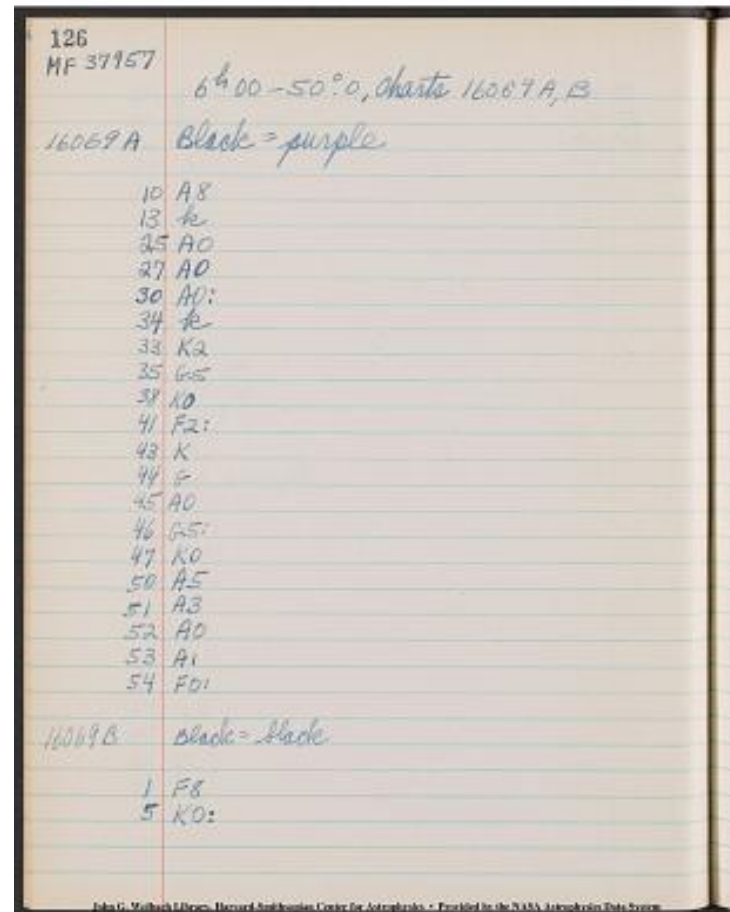 126
MF 37957
6h 00 - 50°.0, Charts 16069 A, B
16069 A Black = purple
10 A8
13 k
25 A0
27 A0
30 A0:
34 k
33 K2
35 G5
38 K0
41 F2:
43 K
44 G
45 A0
46 G5:
47 K0
50 A5
51 A3
52 A0
53 A1
54 F0:
16069 B Black = black
1 F8
5 K0:
John G. Wolbach Library, Harvard-Smithsonian Center for Astrophysics • Provided by the NASA Astrophysics Data System